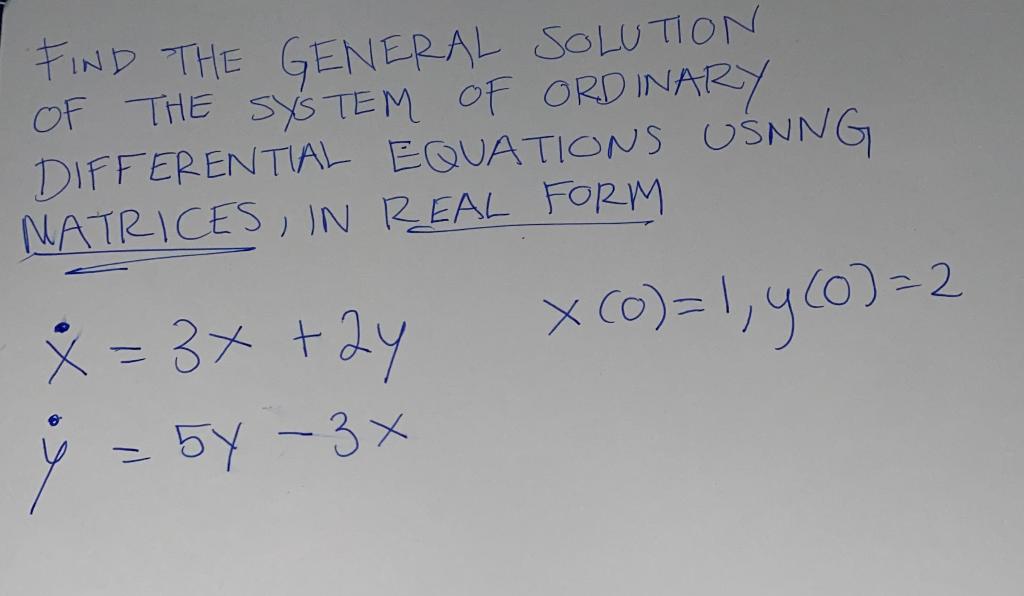 FIND THE GENERAL SOLUTION
OF THE SYSTEM OF ORDINARY
DIFFERENTIAL EQUATIONS USNNG
MATRICES, IN REAL FORM
ẋ = 3x + 2y x(0)=1, y(0)=2
ẏ = 5y - 3x